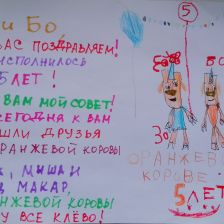 и Бо
ВАС ПОЗДРАВЛЯЕМ!
ИСПОЛНИЛОСЬ
5 ЛЕТ!
ВАМ МОЙ СОВЕТ!
СЕГОДНЯ К ВАМ
ШЛИ ДРУЗЬЯ
РАНЖЕВОЙ КОРОВЫ
МИША И
МАКАР,
РАНЖЕВОЙ КОРОВЫ
У ВСЕ КЛЁВО!
5
Зо
ОРАНЖЕВО
КОРОВЕ
5 ЛЕТ